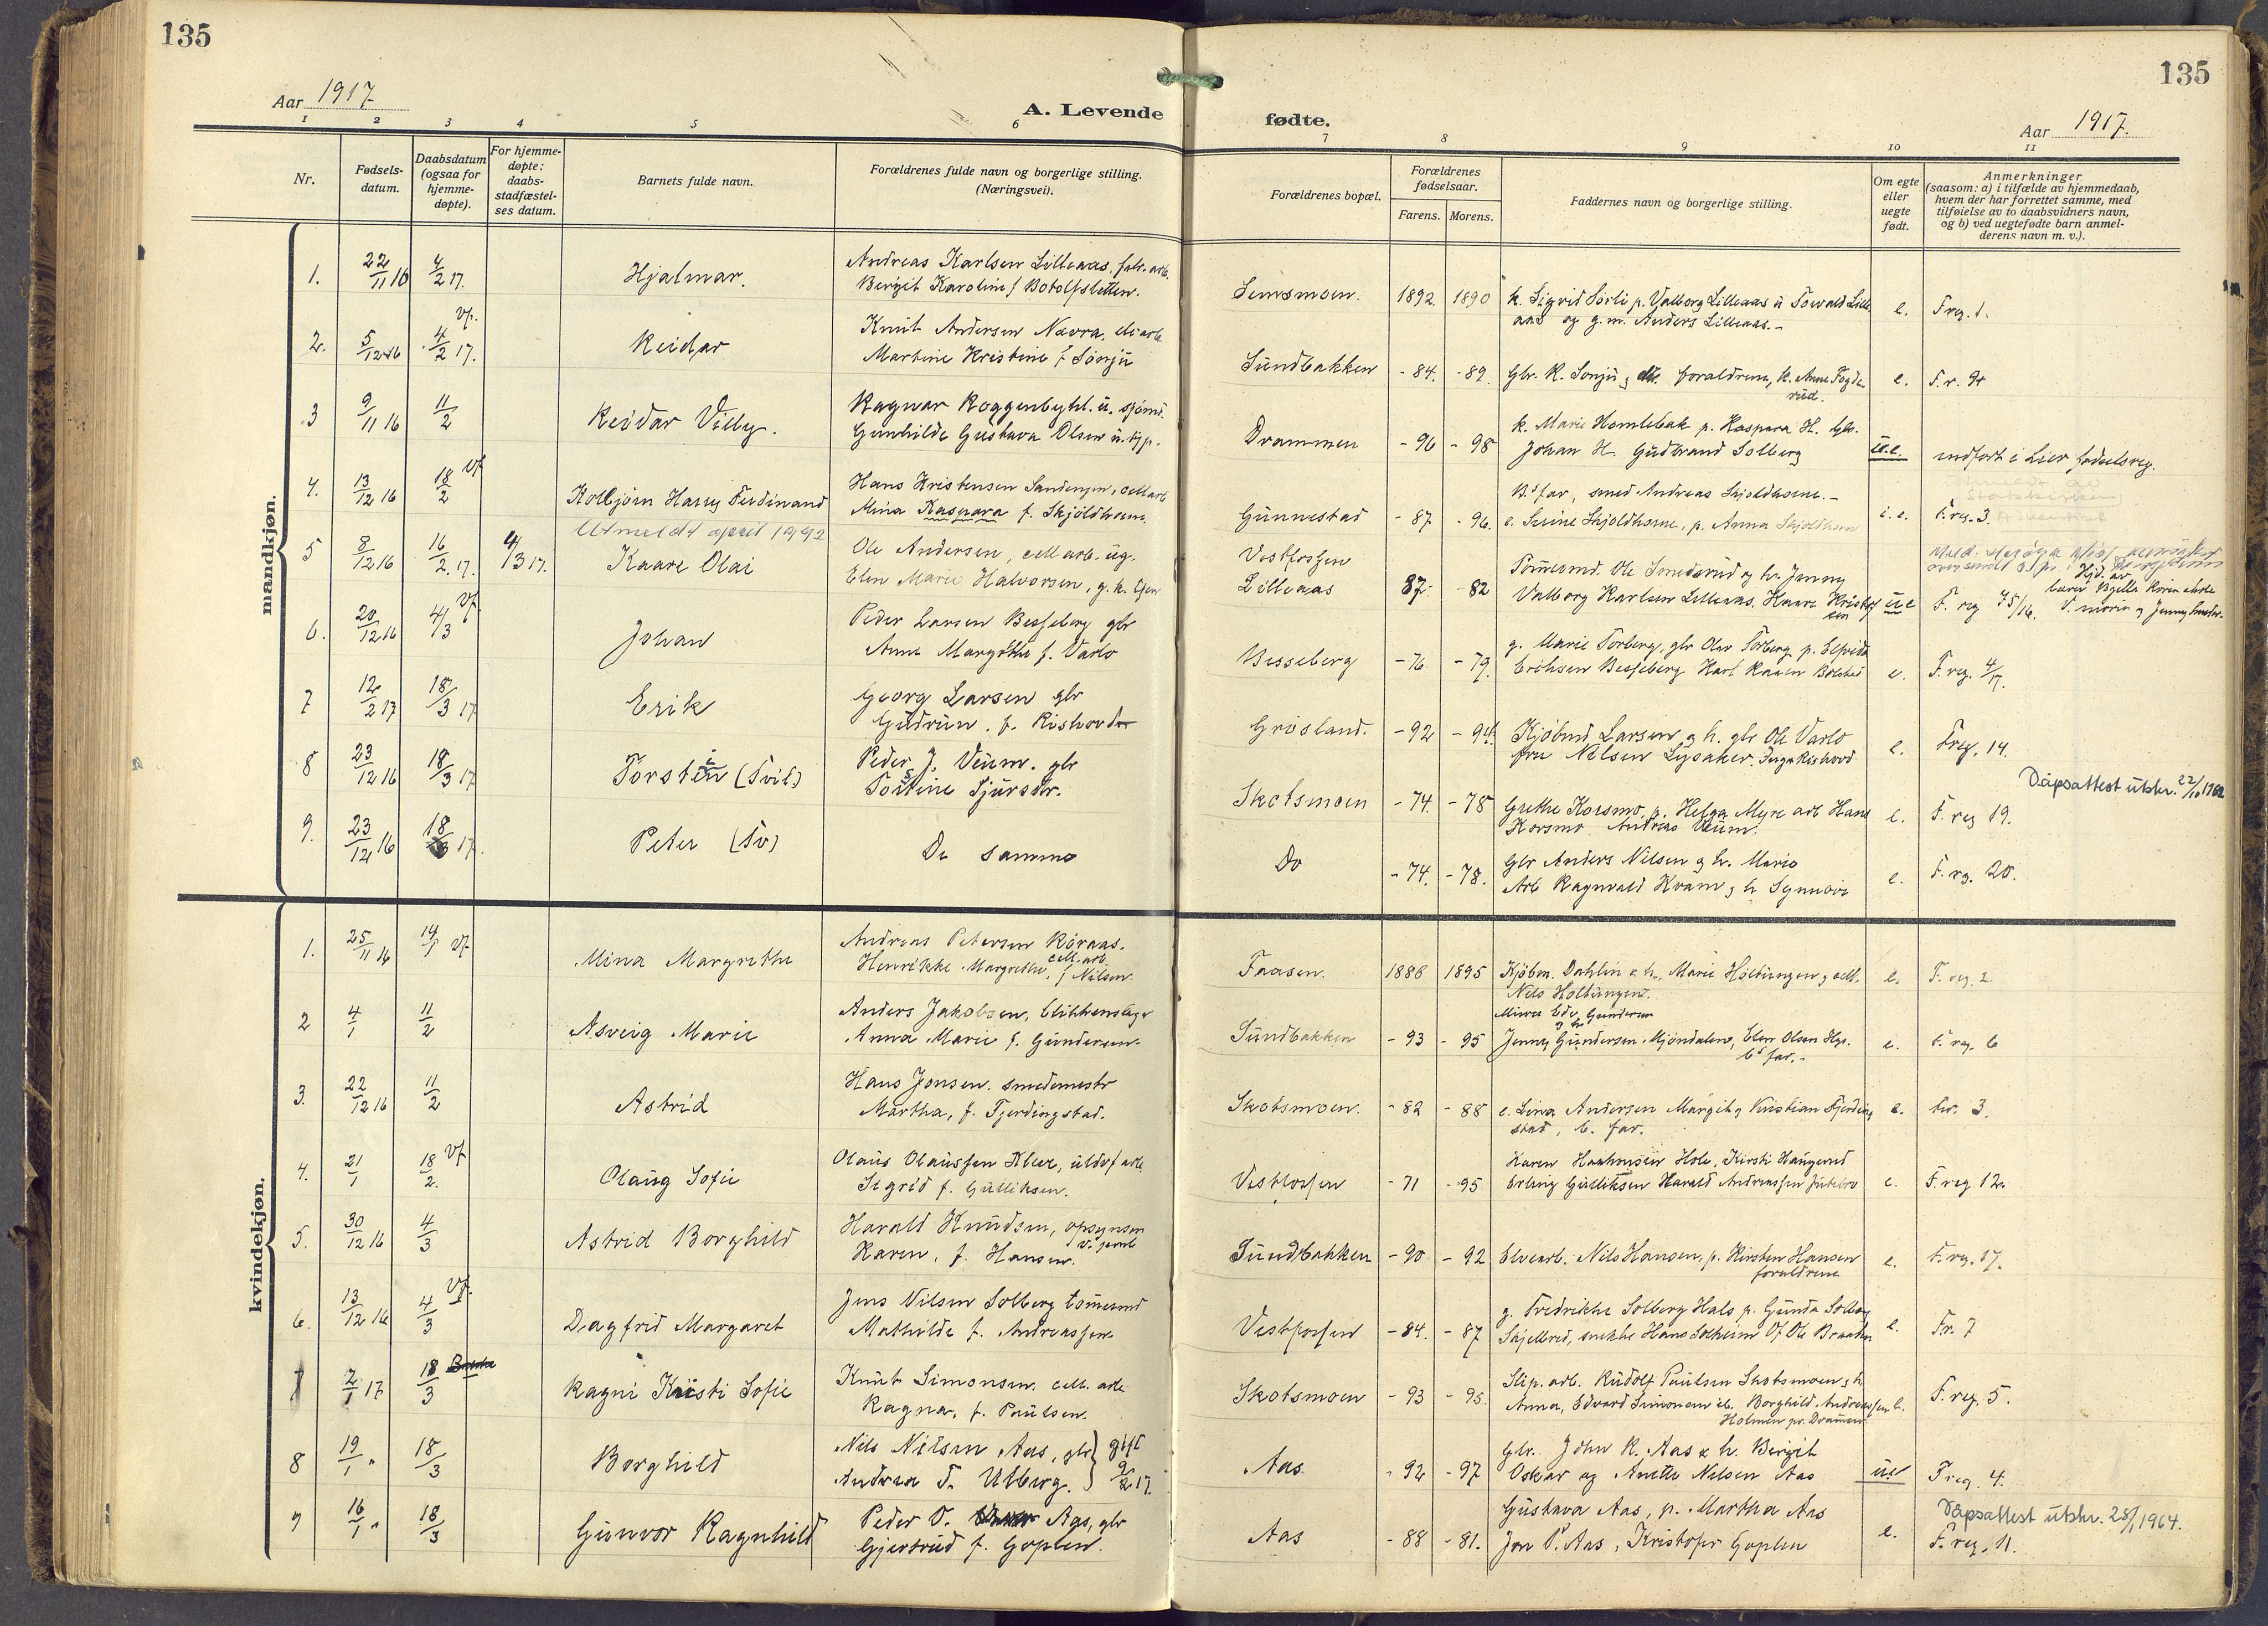 135
135
Aar 1917
A. Levende
fødte.
Aar 1917.
1 2 3 4 5 6 7 8 9 10 11
Nr.
Fødsels-
datum.
Daabsdatum
(ogsaa for
hjemme-
døpte).
For hjemme-
døpte:
daabs-
stadfæstel-
ses datum.
Barnets fulde navn.
Forældrenes fulde navn og borgerlige stilling.
(Næringsvei).
Forældrenes bopæl.
Forældrenes
fødselsaar.
Farens. Morens.
Faddernes navn og borgerlige stilling.
Om egte
eller
uegte
født.
Anmerkninger
(saasom: a) i tilfælde av hjemmedaab,
hvem der har forrettet samme, med
tilføielse av to daabsvidners navn,
og b) ved uegtefødte barn anmel-
derens navn m. v.).
mandkjøn.
1. 22/11 16 4/2 17. Hjalmar. Andreas Karlsen Lilleaas, fabr. arb.
Bergit Karoline f Botolfsletten.
Semsmoen. 1892 1890 k. Sigrid Sørli p. Valborg Lilleaas u Torvald Lille
aas og g.m. Anders Lilleaas.- e. F reg. 1.
2. 5/12 16 4/2 17. Vf. Reidar Knut Andersen Nævra,
Martine Kristine f Sønju
Sundbakken - 84. - 89. Gbr. K. Sønju, forældrene, k. Anne Fogde
rud. e. F. r. 9
3 9/11 16 11/2 Reidar Villy. Ragnar Roggenbyhl. u. sjømd.
Gunhilde Gustava Olsen u. typ.
Drammen - 96 - 98 k. Marie Homlebæk p. Kaspara H. Gbr.
Johan H. Gudbrand Solberg u.e. indført i Lier fødselsreg.
4. 13/12 16 18/2 Vf Kolbjørn Harry Ferdinand Hans Kristensen Sandengen, cell arb
Mina Kaspara f. Skjöldhorne.
Utmeldt april 1992
Gunnestad - 87 - 96. B.s far, smed Andreas Skjoldhorne.-
e. Serine Skjoldhorne, p. Anna Skjoldhorne F. reg. 3.
5 8/12 16 16/2 17. 4/3 17. Kaare Olai Ole Andersen, cell arb. ug.
Elen Marie Halvorsen, g. k.
Vestfossen
Lilleaas 87 - 82 Tømmermd. Ole Smedsrud og h. Jenny
Valborg Karlsen Lilleaas. Kaare Kristof
sen u e F. reg 75/16.
6. 20/12 16 4/3 Vf. Johan Peder Larsen Besseberg gbr
Anne Margrethe f. Varlo
Besseberg - 76 - 79. g. Marie Torberg, gbr Olav Torberg p. Elvida
Eriksen Besseberg Karl e. F. reg. 4/17.
7 12/2 17 18/3 17 Erik Georg Larsen gbr
Gudrun. f. Rishovd
Grøsland. - 92 - 94. Kjøbmd Larsen g h. gbr Ole Varlo
fru Nilsen Lysaker. Inga Rishovd e. F reg. 14.
8 23/12 16 18/3 17 Torstein (Tvil) Peder J. Veum. gbr
Tostine Sjursdr.
Skotsmoen - 74. - 78 Grethe Korsmo, p. Helga Myre arb Hans
Korsmo. Andreas Veum. e. F. reg 19.
Dåpsattest utskr. 22/10 1962
9. 23/12 16 18/3 17. Peter (Tv) De samme
Do - 74. - 78. Gbr Anders Nilsen g h. Marie
Arb Ragnvald Kvam g h Synnøve e. F. rg. 20.
kvindekjøn.
1. 25/11 16 14/1 Vf. Mina Margrethe Andreas Petersen Røraas.
cell. arb.
Henrikke Margrethe, f Nilsen.
Faasen. 1886 1895 Kjøbm. Dahlin & h. Marie Holtungen g cell.
Nils Holtungen. e. F. reg. 2
2 4/1 11/2 Asveig Marie Anders Jakobsen, blikkenslager
Anna Marie f. Gundersen.
Sundbakken - 93 - 95 Jenny Gundersen Mjøndalen, Elen Olsen
b.s far.- e. F. reg. 6
3. 22/12 16 11/2 Astrid Hans Jonsen. smedmestr
Martha, f. Fjerdingstad.
Skotsmoen. - 82 - 88 e. Lina Andersen Margit g Kristian Fjerding
stad, b. far. e. 3.
4. 21/1 18/2. Vf Olaug Sofie Olaus Olaussen Kleer,
Sigrid f. Gulliksen.
Vestfossen - 71 - 95 Karen Haakonsen Hole, Kirsti Haugerud
Erling Gulliksen Harald Andreassen e. F. reg 12.
5. 30/12 16 4/3 Astrid Borghild Harald Knudsen, opsynsm
Karen, f. Hansen.
Sundbakken - 90 - 92 Elvearb. Nils Hansen, p. Kirsten Hansen
forældrene e. F. reg. 17.
6. 13/12 16 4/3 Vf. Dagfrid Margaret Jens Nilsen Solberg tømmermd
Mathilde f. Andreassen
Vestfossen - 84. - 87 g. Fredrikke Solberg Hals p. Gunda Solberg
Skjelbred, snekker Hans Solheim Ole Braaten e. Fr. 7
7 2/1 17 18/3 Ragni Kristi Sofie Knut Simonsen. cell. arb.
Ragna, f. Paulsen.
Skotsmoen - 93 - 95. Slip. arb. Rudolf Paulsen Skotsmoen g h
Anna, Edvard Simonsen Borghild Andreassen
Holmen pr. Drammen. e. F. reg. 5.
8 19/1 " 18/3 Borghild Nils Nilsen Aas, gbr } gift
Andrea T. Ulberg. } 9/2 17.
Aas. - 92 - 97 Gbr. John R. Aas & h. Bergit
Oskar og Anette Nilsen Aas ue F reg. 4.
9 16/1 " 18/3 Gunvor Ragnhild Peder O. Aas, gbr
Gjertrud f. Goplen.
Aas - 88 - 81. Gustava Aas, p. Martha Aas
Jon P. Aas, Kristofer Goplen e. F. reg. 11.
Dåpsattest utskr. 28/1 1964.